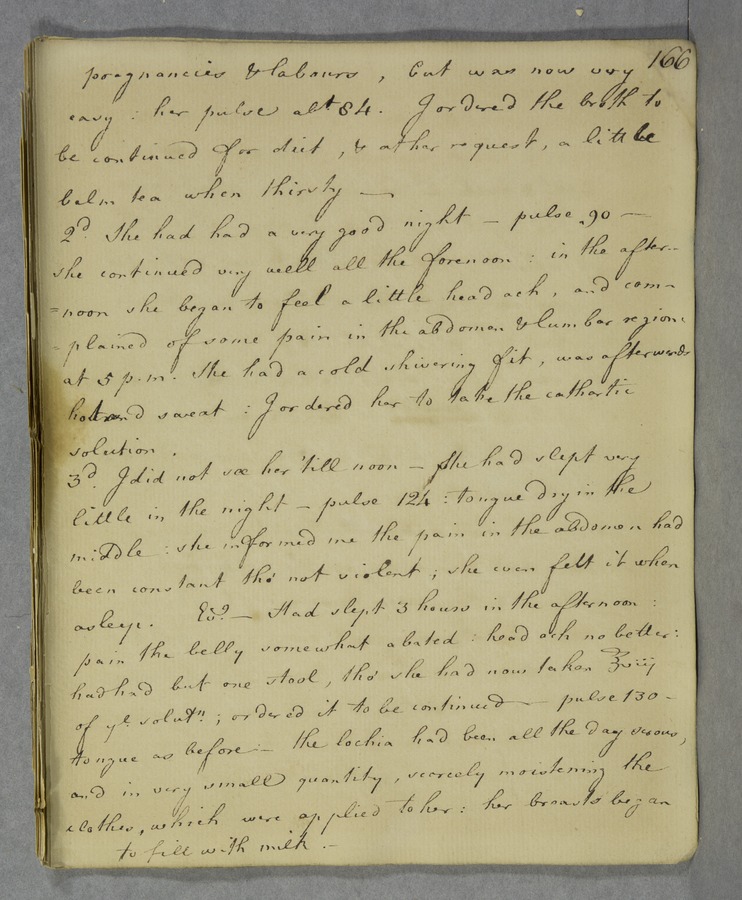 166
pregnancies & labours, but was now very
easy: her pulse abt. 84. I ordered the broth to
be continued for diet, & at her request, a little
balm tea when thirsty —
2d. She had had a very good night — pulse 90 —
she continued very well all the forenoon: in the after-
=noon she began to feel a little head ach, and com-
=plained of some pain in the abdomen & lumbar region:
at 5 p.m. She had a cold shivering fit, was afterwards
hot and sweat: I ordered her to take the cathartic
solution.
3d. I did not see her 'till noon — She had slept very
little in the night — pulse 124: tongue dry in the
middle: she informed me the pain in the abdomen had
been constant tho' not violent; she even felt it when
asleep. Eve. — Had slept 3 hours in the afternoon:
pain the belly somewhat abated: head ach no better:
had had but one stool, tho' she had now taken ℥viij
of ye. solutn; ordered it to be continued — pulse 130 —
tongue as before — the lochia had been all the day serous,
and in very small quantity, scarcely moistening the
clothes, which were applied to her: her breasts began
to fill with milk. —